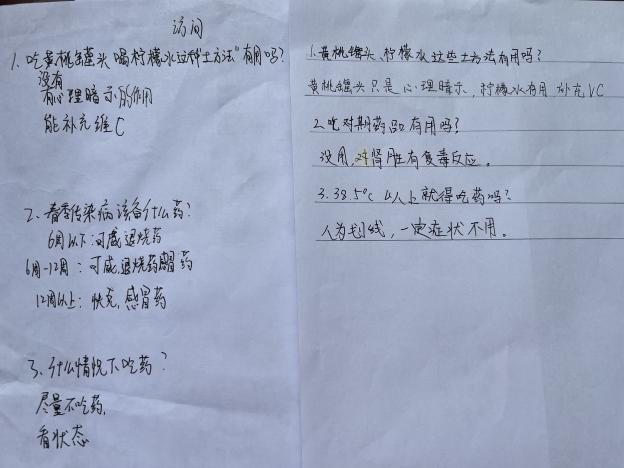 访问
1. 吃黄桃罐头 喝柠檬水这种"土方法"有用吗?
没有
有心理暗示的作用
能补充维C
2. 春季传染病该备什么药?
6周以下:可威,退烧药
6周-12周:可威,退烧药感冒药
12周以上:快克,感冒药
3、什么情况下吃药?
尽量不吃药,
看状态
1. 黄桃罐头、柠檬水这些土方法有用吗?
黄桃罐头只是心理暗示,柠檬水有用 补充VC
2. 吃对期药品有用吗?
没用,对肾脏有复毒反应。
3. 38.5°C 以上就得吃药吗?
人为划线,一定症状不用。